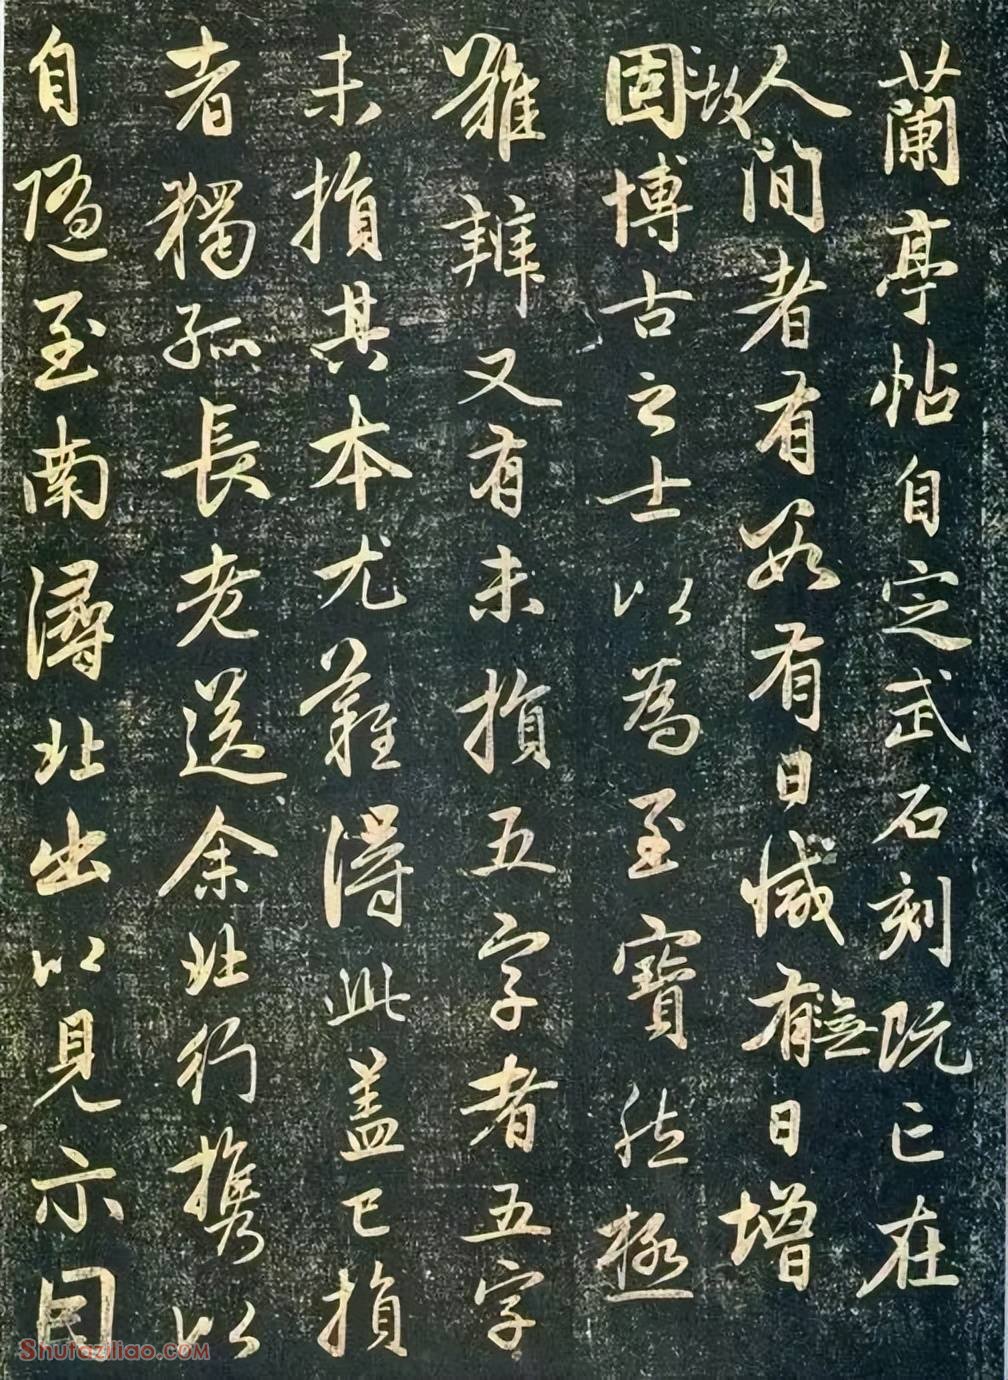 蘭亭帖自定武石刻既亡在
人間者有數有日減有無日增
固故博古之士以為至寶然極
難辨又有未損五字者五字
未損其本尤難得此蓋已損
者獨孤長老送余北行攜以
自隨至南潯北出以見示因
Shufaziliao.COM